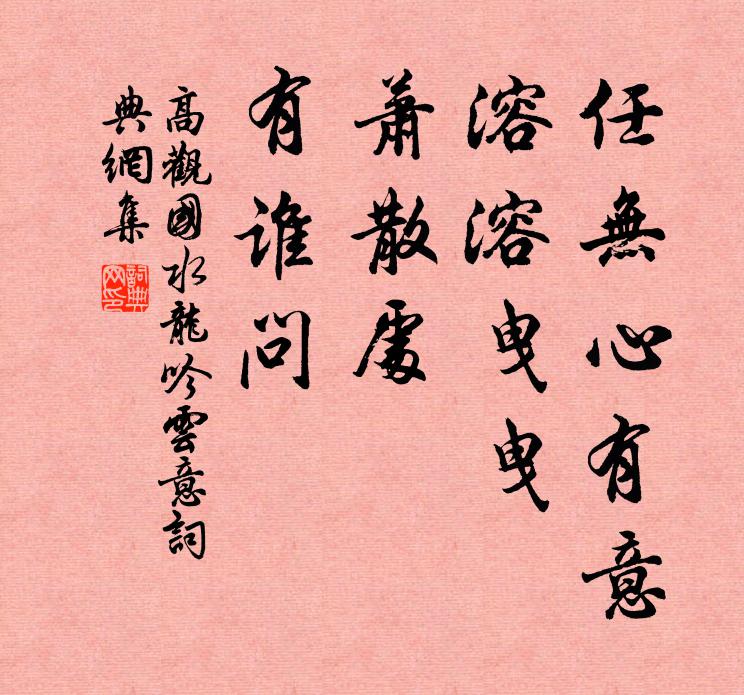 任無心有意
溶溶曳曳
蕭散處
有誰問
高觀國水龍吟雲意詞
典網集
詞典網印